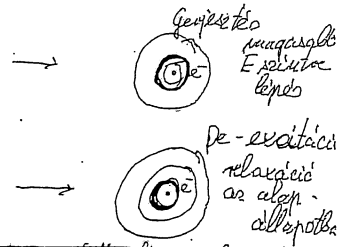 Gerjesztés
magasabb
E szintre
lépés
e⁻
De-exitáció
relaxáció
az alap-
állapotba
e⁻